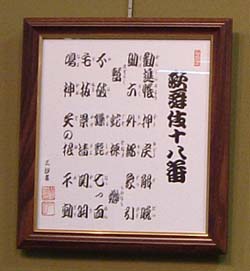 歌舞伎十八番
勧進帳 押戻 解脱
助六 外郎 象引
暫 蛇柳 嫐
不破 鎌髭 七つ面
毛抜 景清 関羽
鳴神 矢の根 不動